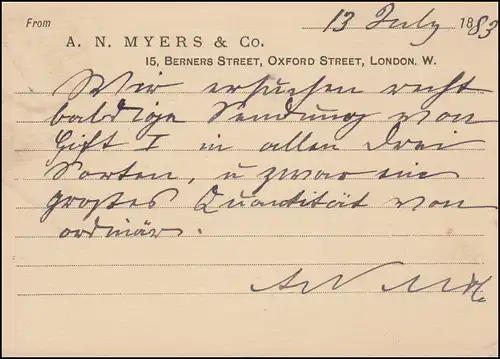 From 13 July 1883
A. N. MYERS & Co.
15, BERNERS STREET, OXFORD STREET, LONDON, W.
Wir ersuchen recht
baldige Sendung von
I in allen drei
Sorten, u zwar ein
großes Quantität von
ordinär.